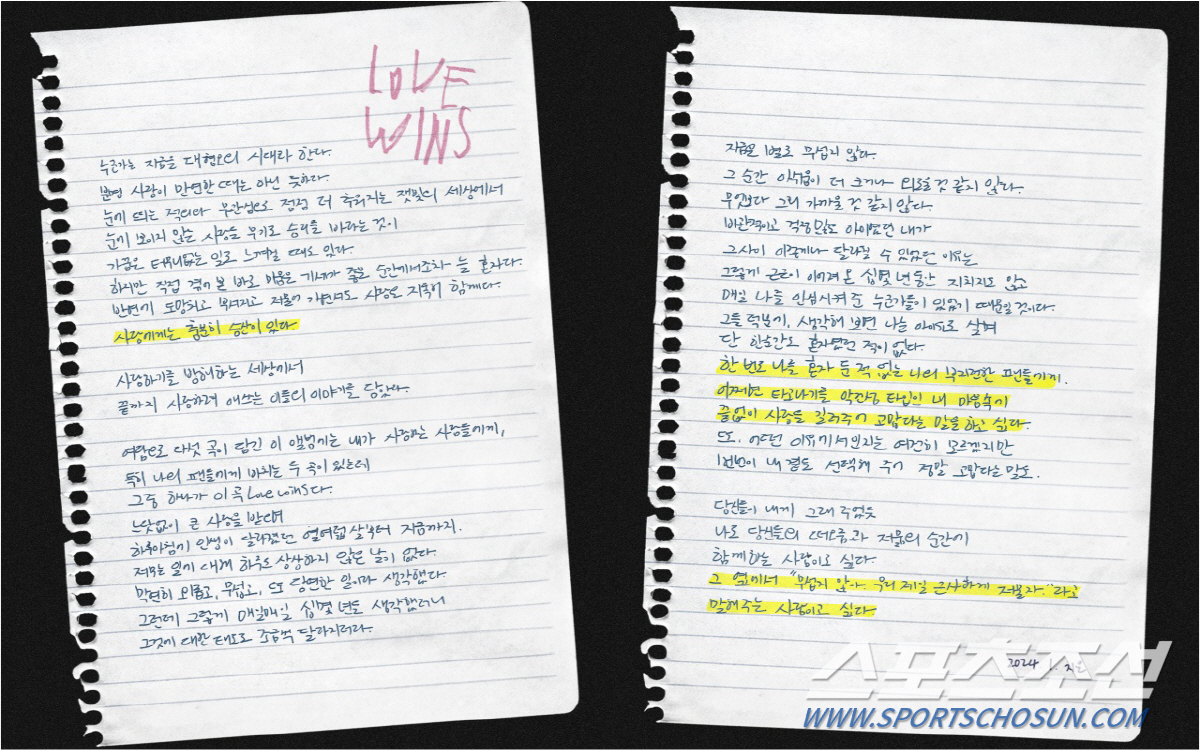 LOVE
WINS
누군가는 지금을 대혐오의 시대라 한다.
분명 사랑이 만연한 때는 아닌 듯하다.
눈에 띄는 적의와 무관심으로 점점 더 추워지는 잿빛의 세상에서
눈에 보이지 않는 사랑을 무기로 승리를 바라는 것이
가끔은 터무니없는 일로 느껴질 때도 있다.
하지만 직접 겪어 본 바로 미움은 기세가 좋은 순간에서조차 늘 혼자다.
반면에 도망치고 부서지고 저물어 가면서도 사랑은 지독히 함께다.
사랑에게는 충분히 승산이 있다.
사랑하기를 방해하는 세상에서
끝까지 사랑하려 애쓰는 이들의 이야기를 담았다.
여담으로 다섯 곡이 담긴 이 앨범에는 내가 사랑하는 사람들에게,
특히 나의 팬들에게 바치는 두 곡이 있는데
그중 하나가 이 곡 Love wins다.
느닷없이 큰 사랑을 받으며
하루아침에 인생이 달라졌던 열여덟 살부터 지금까지.
저무는 일에 대해 하루도 상상하지 않은 날이 없다.
막연히 외롭고, 무섭고, 또 당연한 일이라 생각했다.
그런데 그렇게 매일매일 십몇 년을 생각했더니
그것에 대한 태도도 조금씩 달라지더라.
지금은 별로 무섭지 않다.
그 순간 아쉬움이 더 크거나 외로울 것 같지 않다.
무엇보다 그리 가까울 것 같지 않다.
비관적이고 걱정 많던 아이였던 내가
그사이 이렇게나 달라질 수 있었던 이유는
그렇게 근근이 이어져 온 십몇 년 동안 지치지도 않고
매일 나를 안심시켜 준 누군가들이 있었기 때문일 것이다.
그들 덕분에, 생각해 보면 나는 아이유로 살며
단 한순간도 혼자였던 적이 없다.
한 번도 나를 혼자 둔 적 없는 나의 부지런한 팬들에게.
어쩌면 타고나기를 악건성 타입인 내 마음속에
끝없이 사랑을 길러주어 고맙다는 말을 하고 싶다.
또, 어떤 이유에서인지는 여전히 모르겠지만
1번번이 내 곁을 선택해 주어 정말 고맙다는 말도.
당신들이 내게 그래 주었듯
나도 당신들의 떠오름과 저묾의 순간에
함께하는 사람이고 싶다.
그 옆에서 "무섭지 않아. 우리 제일 근사하게 저물자."라고
말해주는 사람이고 싶다.
2024 지은
스포츠조선
WWW.SPORTSCHOSUN.COM